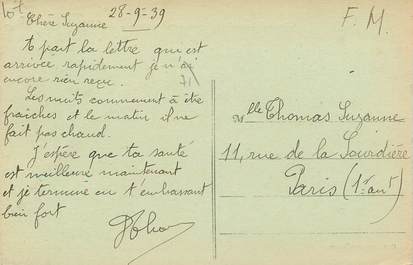 28-9-39
Chère Suzanne
F. M.
A part la lettre qui est
arrivée rapidement je n'ai
encore rien reçu.
Les nuits commencent à être
fraiches et le matin il ne
fait pas chaud.
J'espère que ta santé
est meilleure maintenant
et je termine en t'embrassant
bien fort
Mlle Thomas Suzanne
11, rue de la Sourdière
Paris (1er arr)